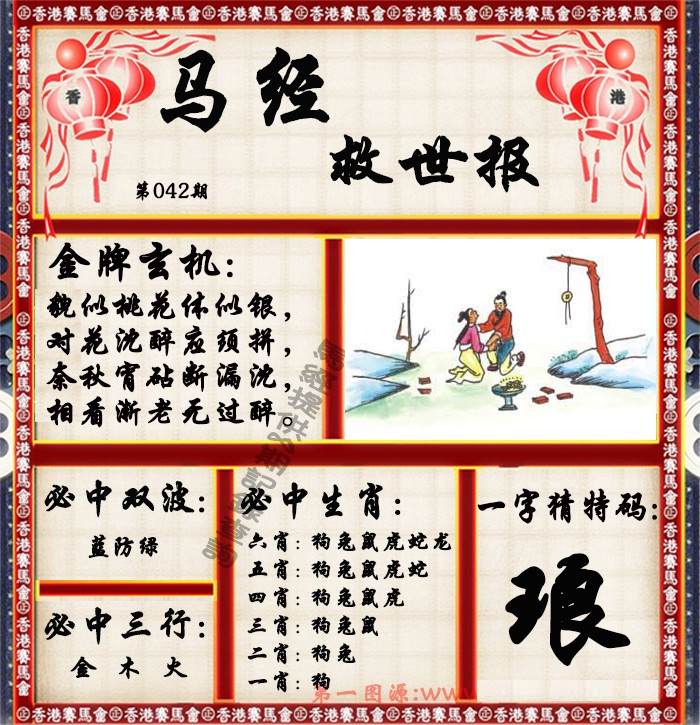 香港賽馬會
香
港
马经
救世报
第042期
金牌玄机：
貌似桃花体似银，
对花沈醉应须拼，
奈秋宵砧断漏沈，
相看渐老无过醉。
必中双波：
蓝防绿
必中三行：
金 木 火
必中生肖：
六肖：狗兔鼠虎蛇龙
五肖：狗兔鼠虎蛇
四肖：狗兔鼠虎
三肖：狗兔鼠
二肖：狗兔
一肖：狗
一字猜特码：
琅
第一图源:www